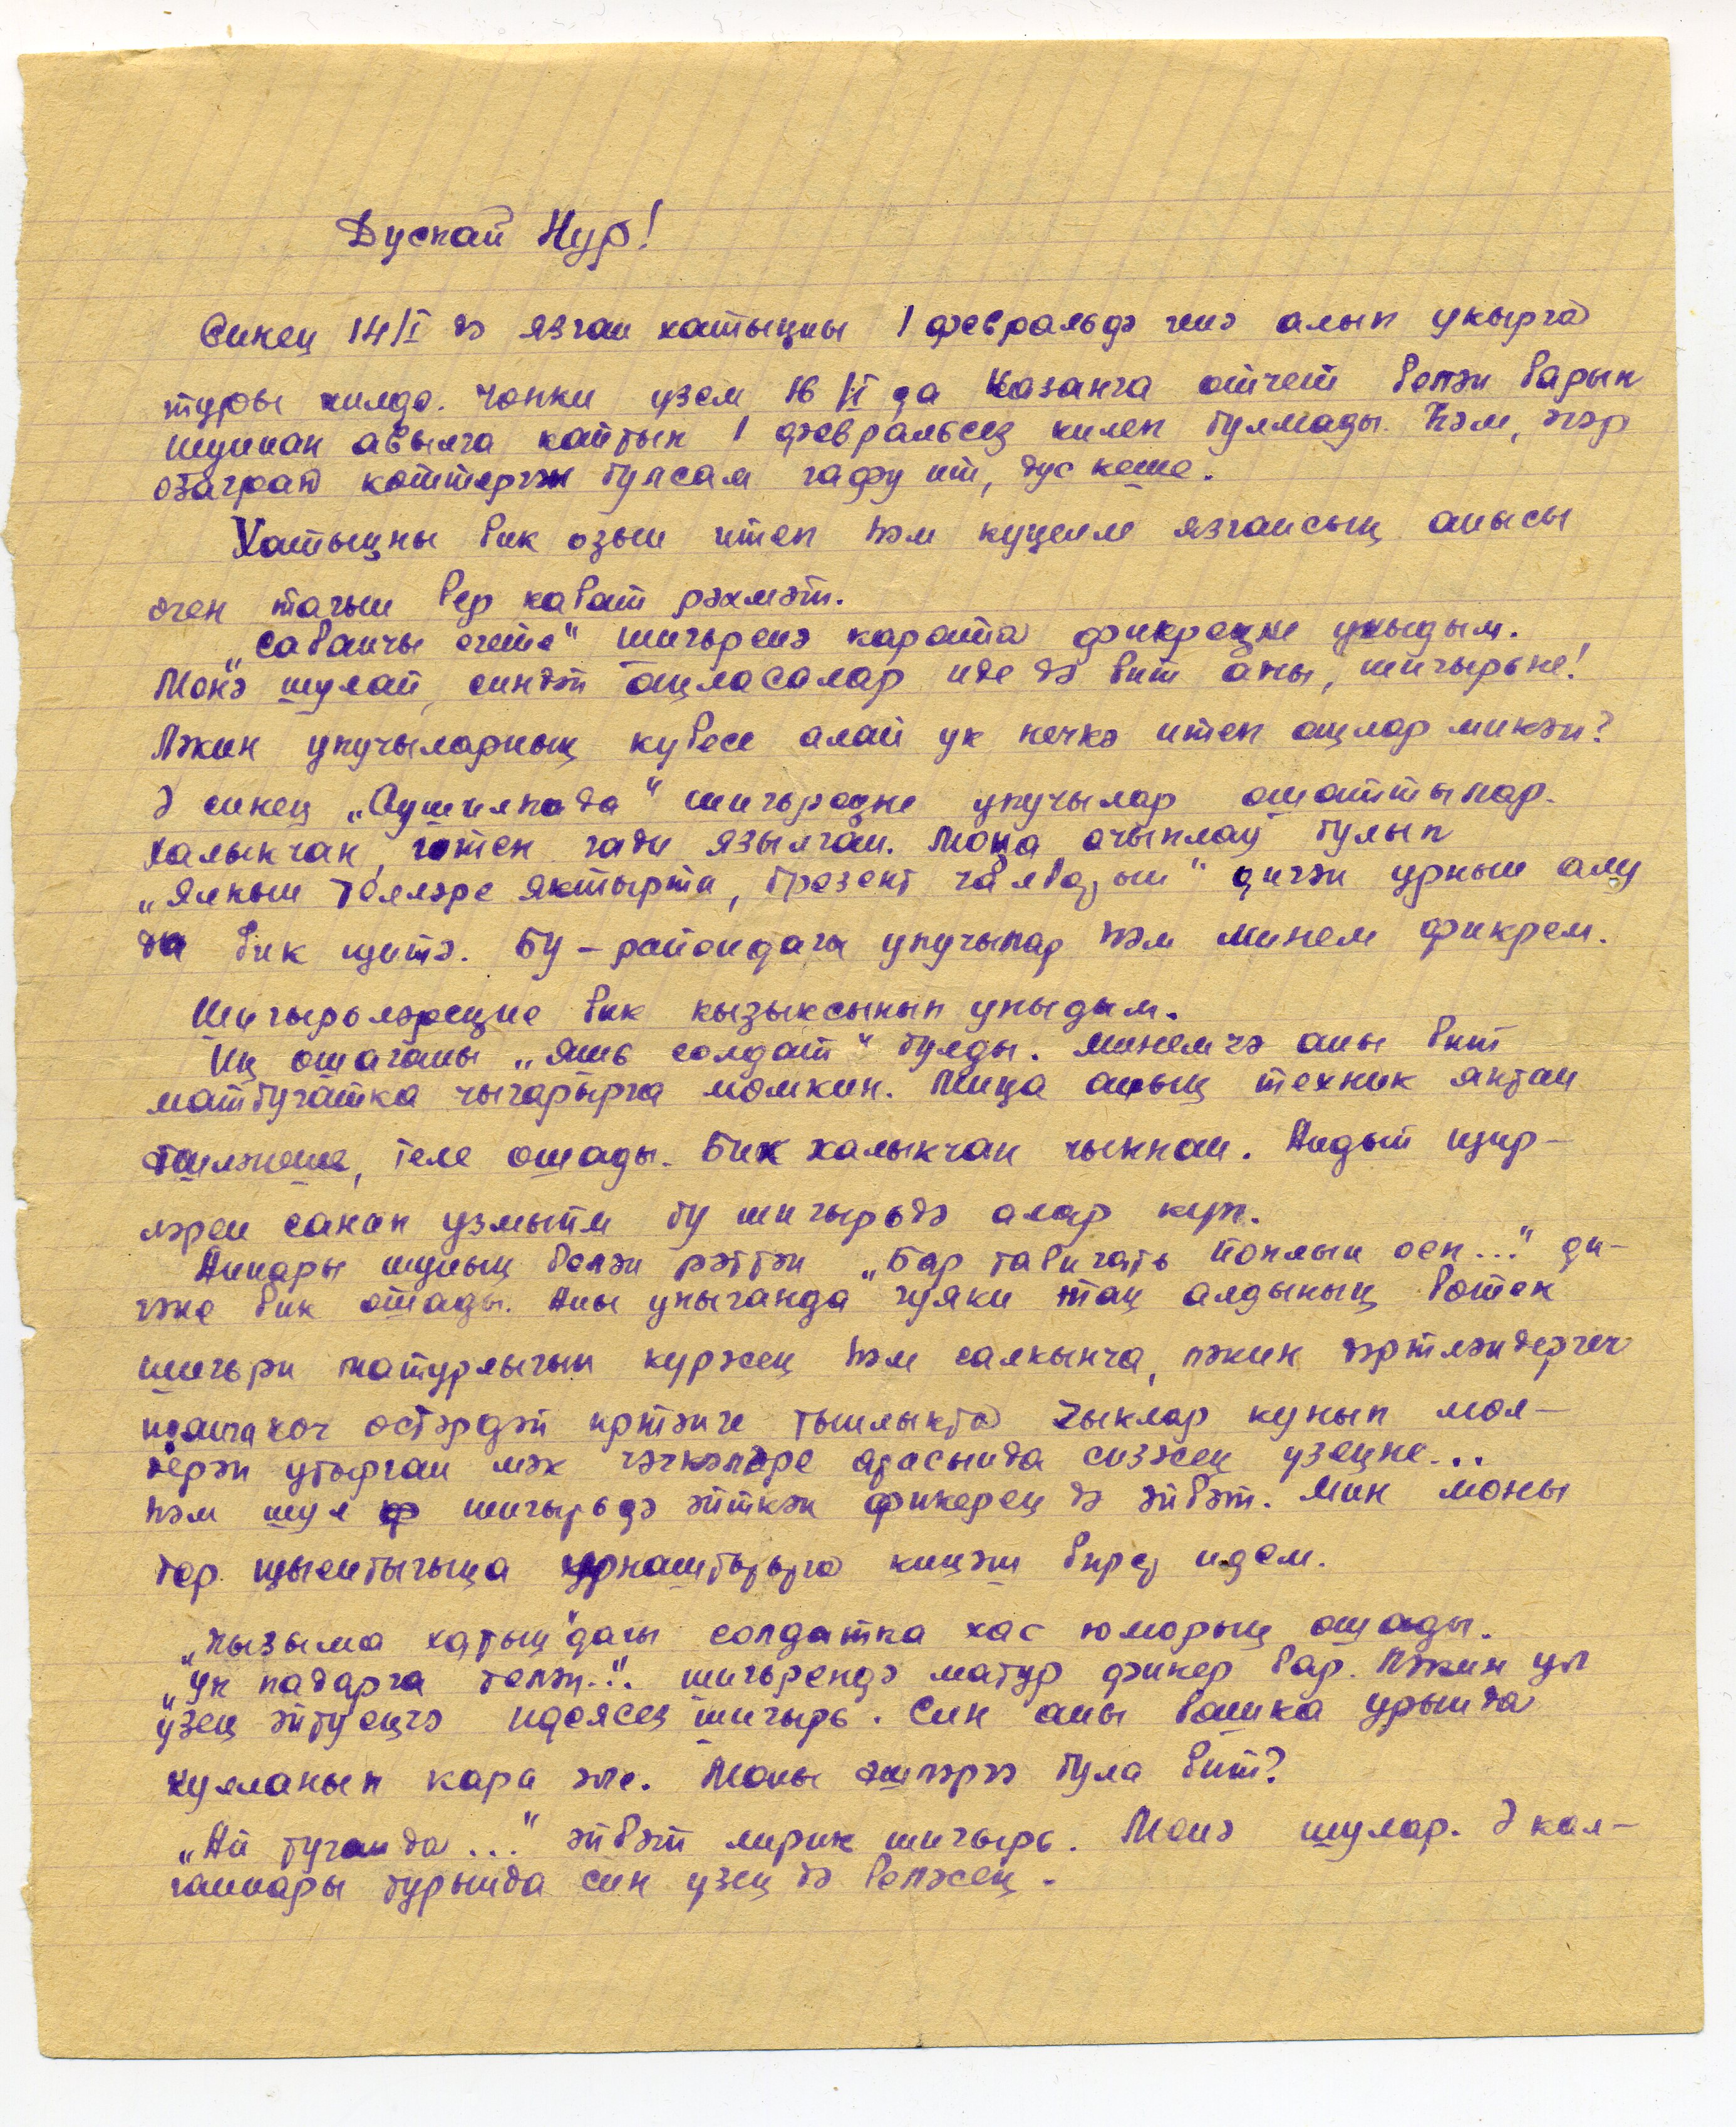 Дускай Нур!
Синең 14/I дә язган хатыңны 1 февральдә генә алып укырга
туры килде. Чөнки үзем 16/II да Казанга отчет белән барып
шуннан авылга кайтып 1 февральсез килеп булмады. Һәм, әгәр
озаграк көттергән булсам гафу ит, дус кеше.
Хатыңны бик озын итеп һәм күңелле язгансың анысы
өчен тагын бер кабат рәхмәт.
„Сабанчы егете" шигъренә карата фикереңне укыдым.
Менә шулай, синдәй аңласалар иде дә бит аны, шигырьне!
Ләкин укучыларның күбесе алай ук нечкә итеп аңлар микән?
Ә синең „Аушилкада" шигъреңне укучылар ошаттылар.
Халыкчан, җитен гади язылган. Моңа ачыклау булып
„Ялкын телләре яктырта, брезент чалбарын" дигән урынны алу
да бик җитә. Бу – райондагы укучылар һәм минем фикрем.
Шигырьләреңне бик кызыксынып укыдым.
Иң ошаганы „Яшь солдат" булды. Минемчә аны бит
матбугатка чыгарырга мөмкин. Миңа аның техник яктан
эшләнеше, теле ошады. Бик халыкчан чыккан. Андый җир–
ләрен санап узмыйм бу шигырьдә алар күп.
Аннары шуның белән рәттән „Бар табигать йоклый осп..." ди–
гәне бик ошады. Аны укыганда гүяки таң алдының бөтен
шигъри матурлыгын күрәсең һәм салкынча, ләкин дәртләндергеч
көч өстәрдәй иртәнге тышлыкта чыклар кунып мөл–
дерәп утырган мәк чәчкәләре арасында сизәсең үзеңне...
Һәм шул шигырьдә әйткән фикерең дә әйбәт. Мин моны
бер җыентыгыңа урнаштырырга киңәш бирер идем.
„Кызыма хатың"дагы солдатка хас юморың ошады.
„Ук кадарга телән..." шигъреңдә матур фикер бар. Ләкин ул
үзең әйтүеңчә идеясез шигырь. Син аны башка урында
кулланып кара әле. Моны эшләргә була бит?
„Ай туганда..." әйбәт лирик шигырь. Менә шулар. Ә кал–
ганнары турында син үзең дә беләсең.